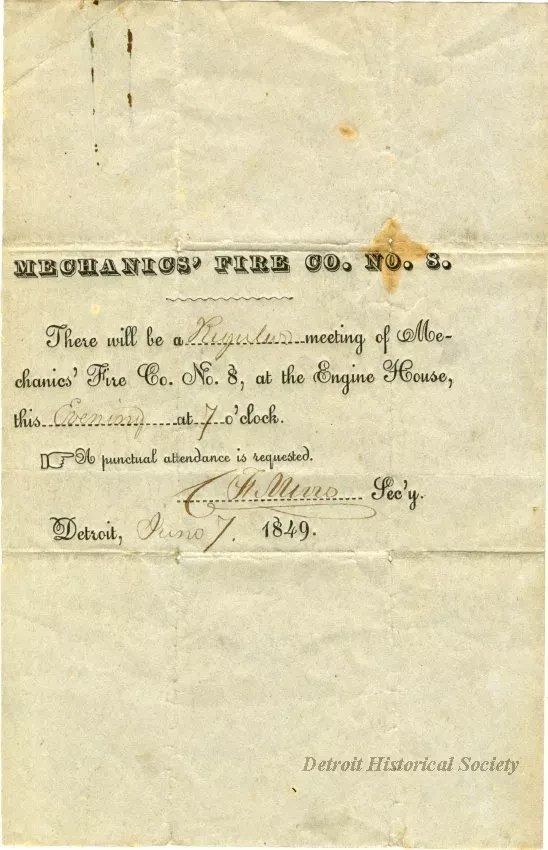 MECHANICS' FIRE CO. NO. 8.
There will be a Regular meeting of Me-
chanics' Fire Co. No. 8, at the Engine House,
this Evening at 7 o'clock.
☞ A punctual attendance is requested.
Sec'y.
Detroit, June 7. 1849.
Detroit Historical Society